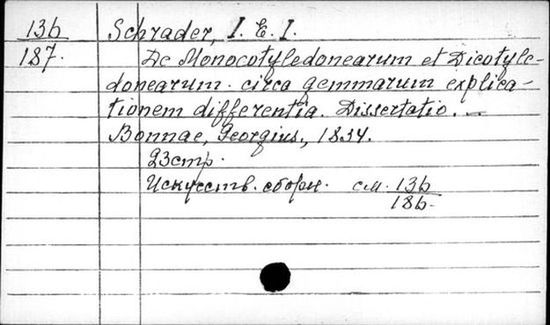 13b Schrader, I. E. I.
187. De Monocotyledonearum et Dicotyle-
donearum circa gemmarum explica-
tionem differentia. Dissertatio. —
Bonnae, Georgius, 1834.
23стр.
Искусств. сборн. см. 13b
18b.